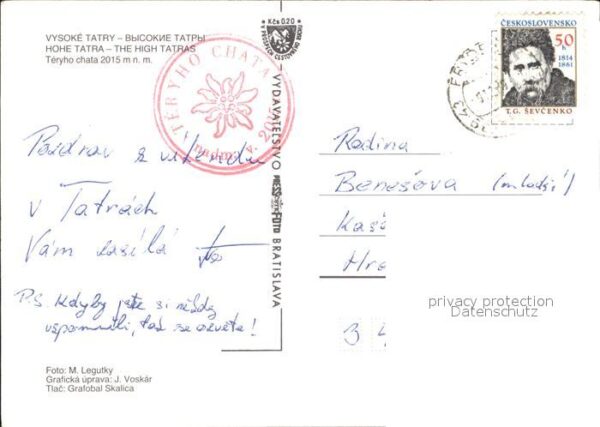 VYSOKÉ TATRY – ВЫСОКИЕ ТАТРЫ
HOHE TATRA – THE HIGH TATRAS
Téryho chata 2015 m n. m.
Kčs 0.20
VYDAVATEĽSTVO PRESSFOTO BRATISLAVA
TÉRYHO CHATA
nadm. v. 20
ČESKOSLOVENSKO
50 h
1814
1861
T.G. ŠEVČENKO
Pozdrav z víkendu
v Tatrách
Vám zasílá
P.S. Kdyby jste si někdy
vzpomněli, tak se ozvěte!
Rodina
Benešova (mladší)
Kas
Hra
3 4
privacy protection
Datenschutz
Foto: M. Legutky
Grafická úprava: J. Voskár
Tlač: Grafobal Skalica